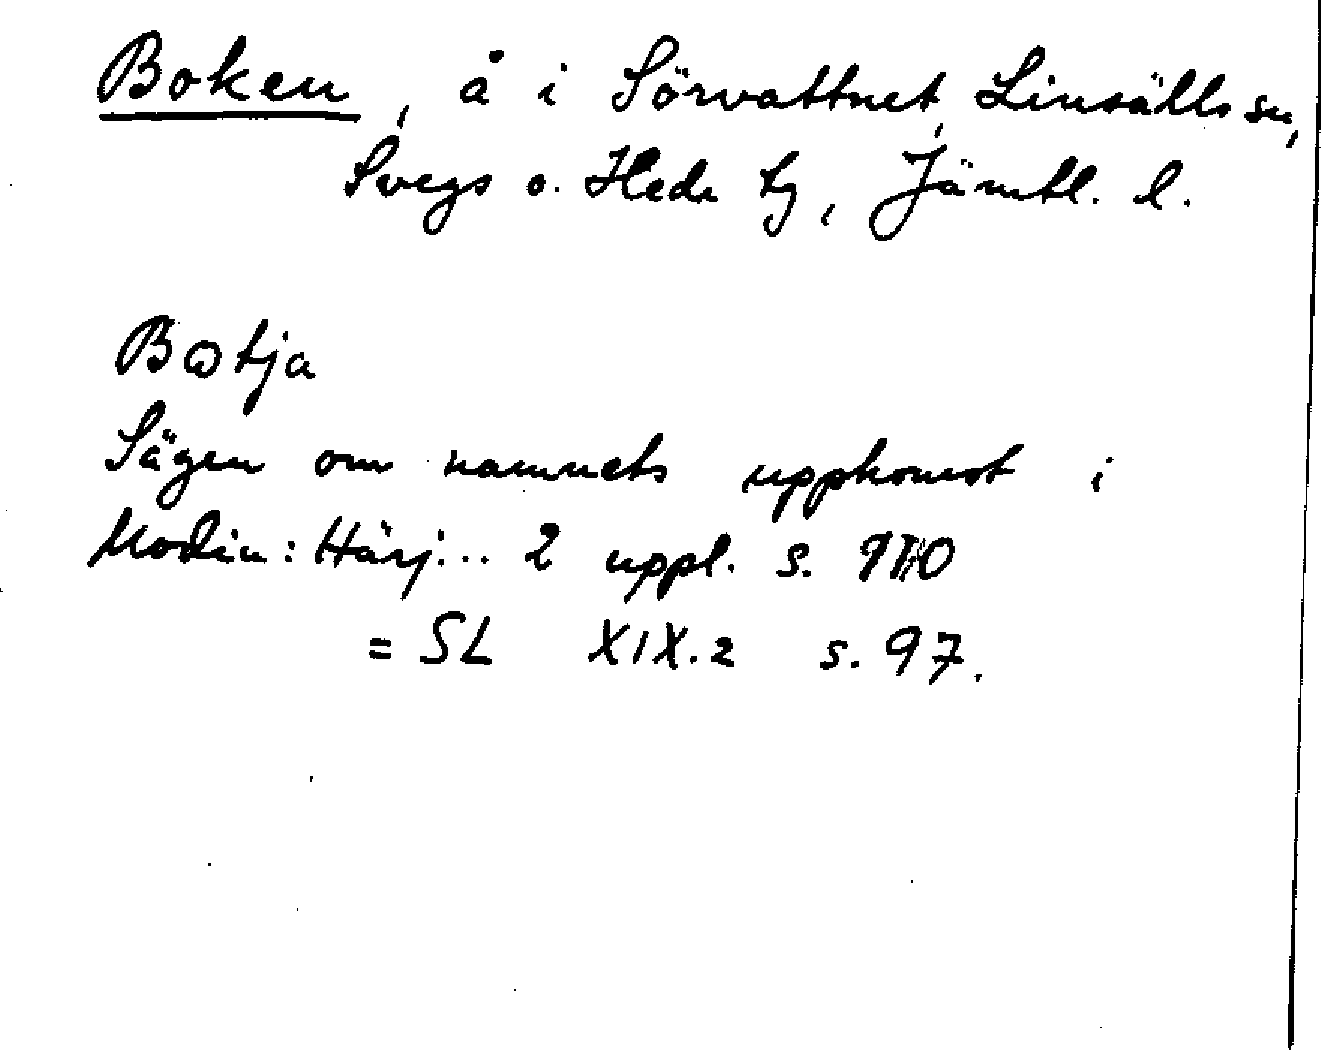 Boken, å i Sörvattnet, Linsälls sn,
Svegs o. Hede tg, Jämtl. l.
Bωtja
Sägen om namnets uppkomst i
Modin: Härj... 2 uppl. s.
= SL XIX.2 s. 97.